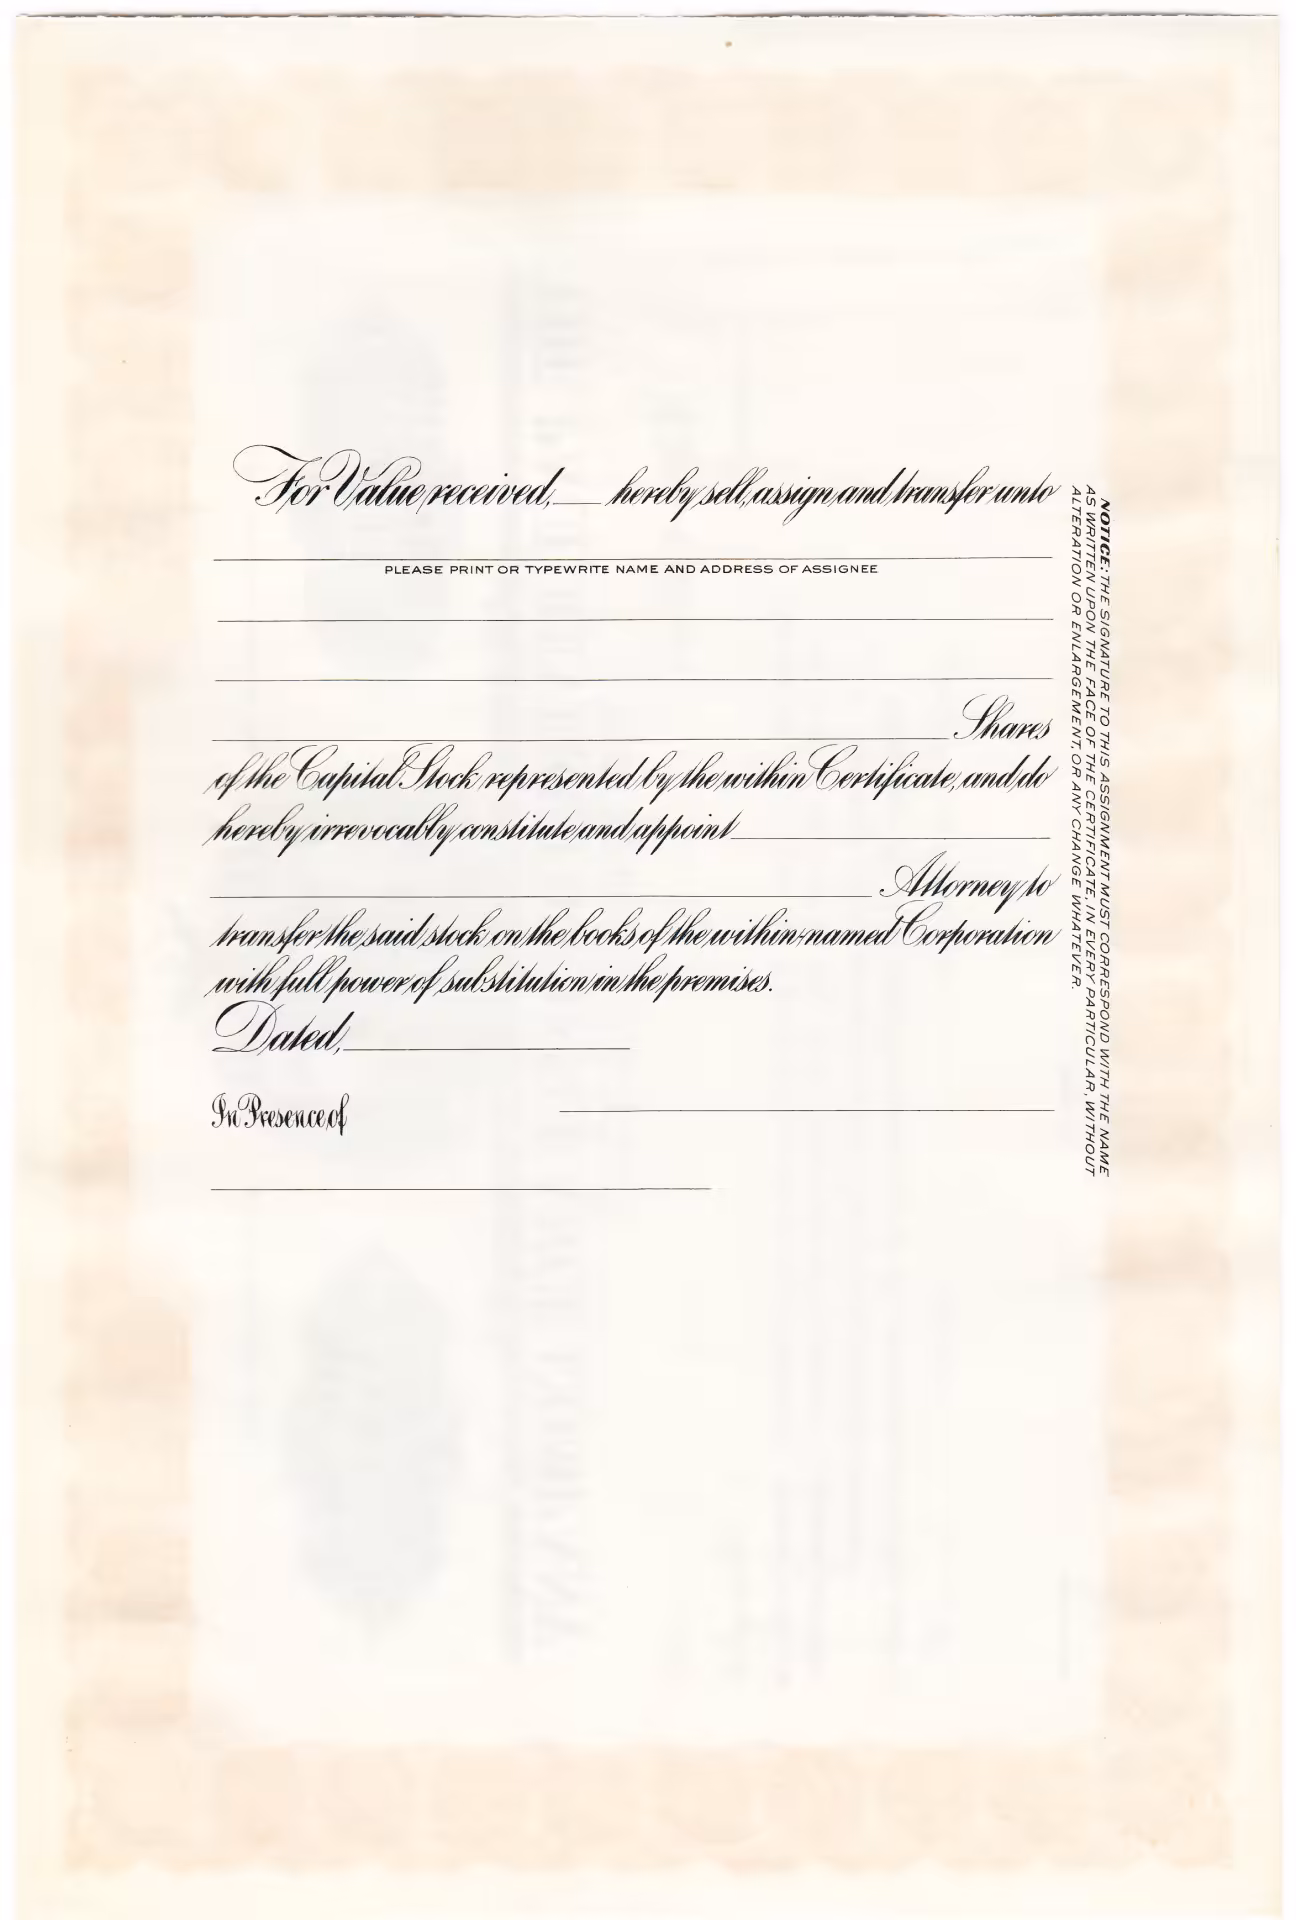 For Value received, ___ hereby sell, assign and transfer unto
PLEASE PRINT OR TYPEWRITE NAME AND ADDRESS OF ASSIGNEE
Shares
of the Capital Stock represented by the within Certificate, and do
hereby irrevocably constitute and appoint
Attorney to
transfer the said stock on the books of the within-named Corporation
with full power of substitution in the premises.
Dated,
In Presence of
NOTICE: THE SIGNATURE TO THIS ASSIGNMENT MUST CORRESPOND WITH THE NAME
AS WRITTEN UPON THE FACE OF THE CERTIFICATE, IN EVERY PARTICULAR, WITHOUT
ALTERATION OR ENLARGEMENT, OR ANY CHANGE WHATEVER.